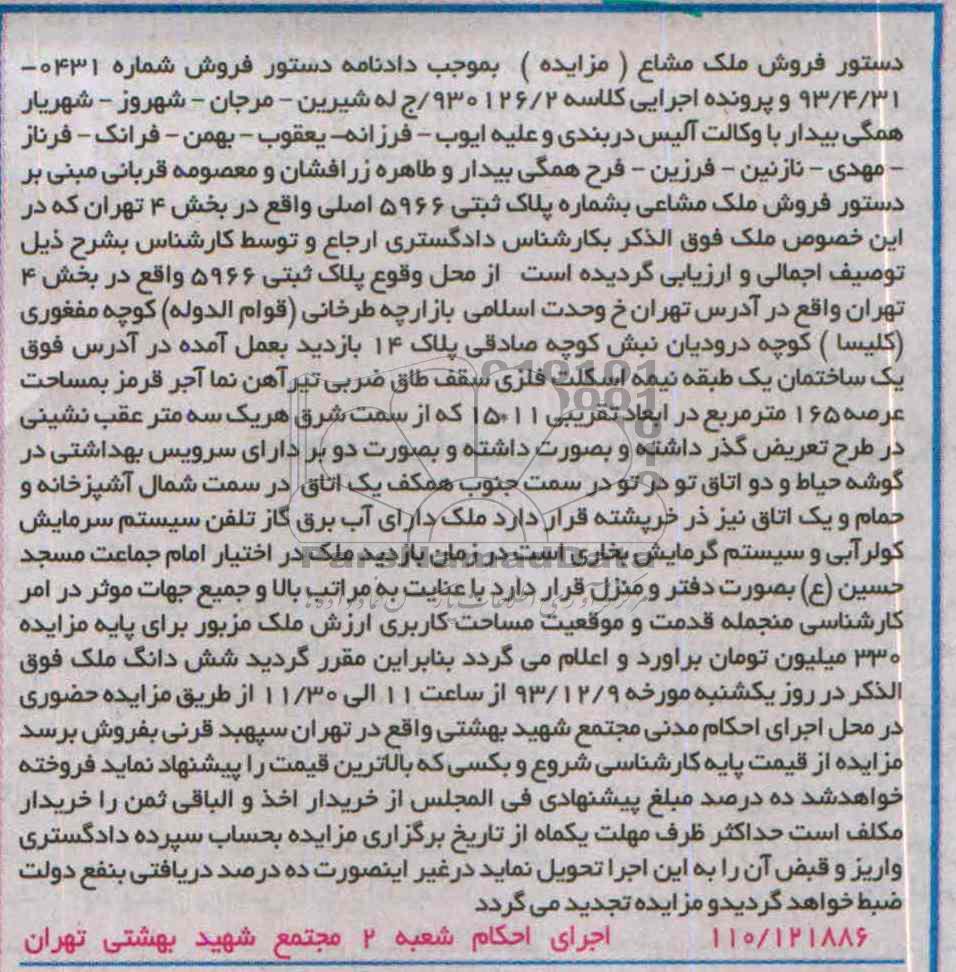 دستور فروش ملک مشاع ( مزایده ) بموجب دادنامه دستور فروش شماره ۰۴۳۱–
۹۳/۴/۳۱ و پرونده اجرایی کلاسه ۹۳۰۱۲۶/۲/ج له شیرین – مرجان – شهروز – شهریار
همگی بیدار با وکالت آلیس دربندی و علیه ایوب – فرزانه– یعقوب – بهمن – فرانک – فرناز
– مهدی – نازنین – فرزین – فرح همگی بیدار و طاهره زرافشان و معصومه قربانی مبنی بر
دستور فروش ملک مشاعی بشماره پلاک ثبتی ۵۹۶۶ اصلی واقع در بخش ۴ تهران که در
این خصوص ملک فوق الذکر بکارشناس دادگستری ارجاع و توسط کارشناس بشرح ذیل
توصیف اجمالی و ارزیابی گردیده است از محل وقوع پلاک ثبتی ۵۹۶۶ واقع در بخش ۴
تهران واقع در آدرس تهران خ وحدت اسلامی بازارچه طرخانی (قوام الدوله) کوچه مفغوری
(کلیسا ) کوچه درودیان نبش کوچه صادقی پلاک ۱۴ بازدید بعمل آمده در آدرس فوق
یک ساختمان یک طبقه نیمه اسکلت فلزی سقف طاق ضربی تیرآهن نما آجر قرمز بمساحت
عرصه ۱۶۵ مترمربع در ابعاد تقریبی ۱۱*۱۵ که از سمت شرق هریک سه متر عقب نشینی
در طرح تعریض گذر داشته و بصورت داشته و بصورت دو بر دارای سرویس بهداشتی در
گوشه حیاط و دو اتاق تو در تو در سمت جنوب همکف یک اتاق در سمت شمال آشپزخانه و
حمام و یک اتاق نیز در خرپشته قرار دارد ملک دارای آب برق گاز تلفن سیستم سرمایش
کولرآبی و سیستم گرمایش بخاری است در زمان بازدید ملک در اختیار امام جماعت مسجد
حسین (ع) بصورت دفتر و منزل قرار دارد با عنایت به مراتب بالا و جمیع جهات موثر در امر
کارشناسی منجمله قدمت و موقعیت مساحت کاربری ارزش ملک مزبور برای پایه مزایده
۳۳۰ میلیون تومان براورد و اعلام می گردد بنابراین مقرر گردید شش دانگ ملک فوق
الذکر در روز یکشنبه مورخه ۹۳/۱۲/۹ از ساعت ۱۱ الی ۱۱/۳۰ از طریق مزایده حضوری
در محل اجرای احکام مدنی مجتمع شهید بهشتی واقع در تهران سپهبد قرنی بفروش برسد
مزایده از قیمت پایه کارشناسی شروع و بکسی که بالاترین قیمت را پیشنهاد نماید فروخته
خواهدشد ده درصد مبلغ پیشنهادی فی المجلس از خریدار اخذ و الباقی ثمن را خریدار
مکلف است حداکثر ظرف مهلت یکماه از تاریخ برگزاری مزایده بحساب سپرده دادگستری
واریز و قبض آن را به این اجرا تحویل نماید درغیر اینصورت ده درصد دریافتی بنفع دولت
ضبط خواهد گردیدو مزایده تجدید می گردد
۱۱۰/۱۲۱۸۸۶ اجرای احکام شعبه ۲ مجتمع شهید بهشتی تهران
ParsNamadData